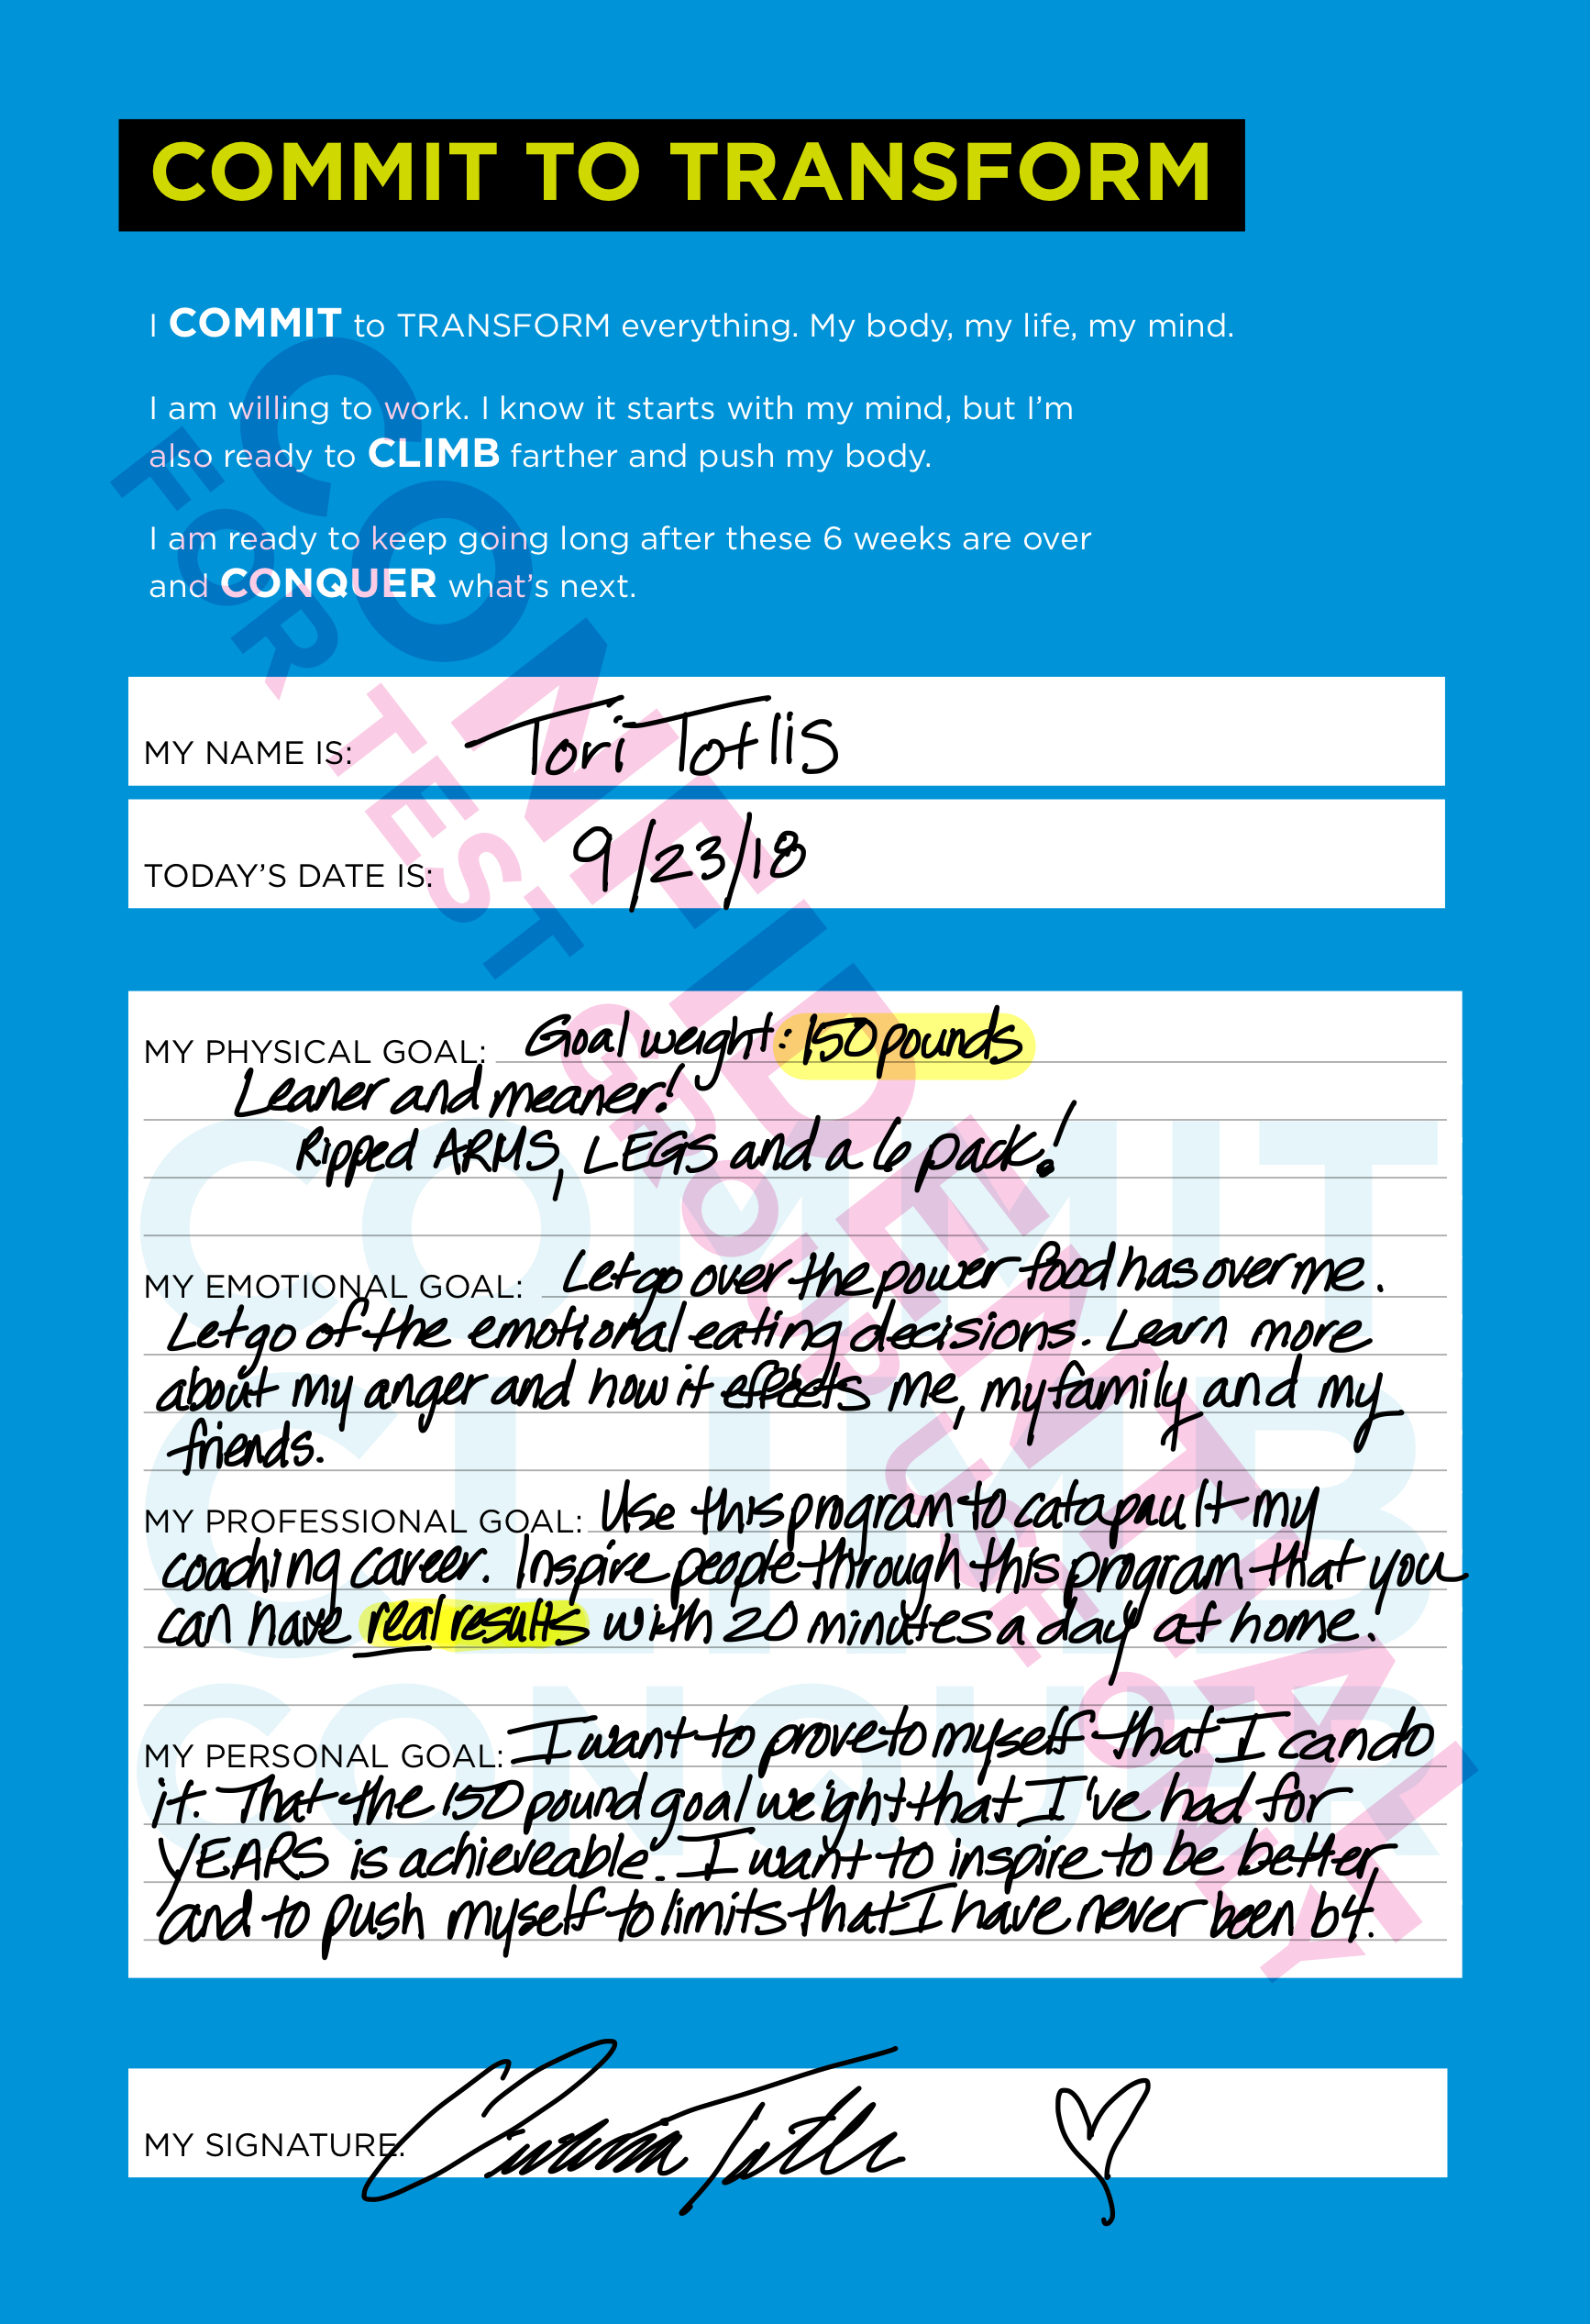 COMMIT TO TRANSFORM
I COMMIT to TRANSFORM everything. My body, my life, my mind.
I am willing to work. I know it starts with my mind, but I'm
also ready to CLIMB farther and push my body.
I am ready to keep going long after these 6 weeks are over
and CONQUER what's next.
MY NAME IS: Tori Totlis
TODAY'S DATE IS: 9/23/18
MY PHYSICAL GOAL: Goal weight: 150 pounds
Leaner and meaner!
Ripped ARMS, LEGS and a 6 pack!
MY EMOTIONAL GOAL: Let go over the power food has over me.
Let go of the emotional eating decisions. Learn more
about my anger and how it effects me, my family and my
friends.
MY PROFESSIONAL GOAL: Use this program to catapault my
coaching career. Inspire people through this program that you
can have real results with 20 minutes a day at home.
MY PERSONAL GOAL: I want to prove to myself that I can do
it. That the 150 pound goal weight that I've had for
YEARS is achieveable. I want to inspire to be better,
and to push myself to limits that I have never been b4.
MY SIGNATURE:
CONFIDENTIAL
FOR TEST GROUP USE ONLY
COMMIT
CLIMB
CONQUER